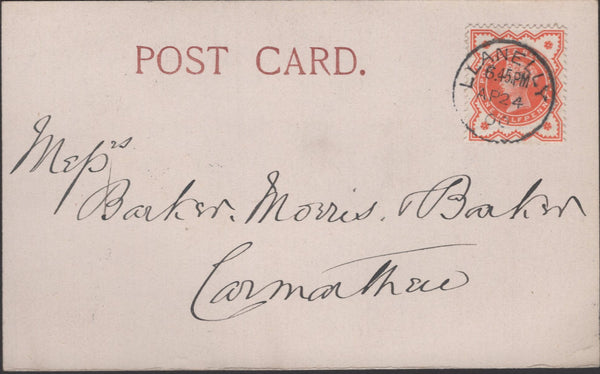 POST CARD.
LLANELLY
6.45 PM
AP 24
HALFPENNY
Messrs
Barker, Morris, & Barker
Carmarthen